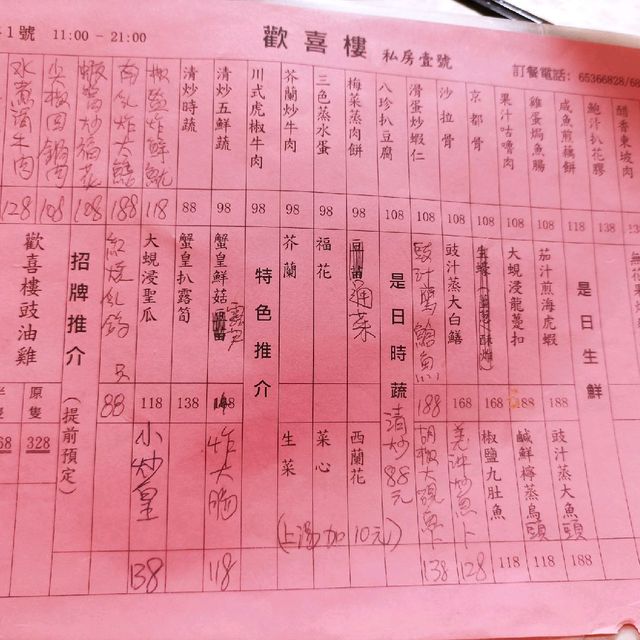 1號 11:00 - 21:00
歡喜樓 私房壹號
訂餐電話: 65366828/68
醋香東坡肉 138
鮑汁扒花膠 138
咸魚煎藕餅 118
雞蛋焗魚腸 118
果汁咕嚕肉 108
京都骨 108
沙拉骨 108
滑蛋炒蝦仁 108
八珍扒豆腐 108
梅菜蒸肉餅 98
三色蒸水蛋 98
芥蘭炒牛肉 98
川式虎椒牛肉 98
清炒五鮮蔬 98
清炒時蔬 88
椒鹽炸鮮魷 118
188
蝦醬炒福花 108
尖椒回鍋肉 108
水煮活牛肉 128
是日生鮮
茄汁煎海虎蝦 188
大蜆浸龍躉扣 188
168
豉汁蒸大白鱔 168
188
豉汁蒸大魚頭 188
鹹鮮檸蒸烏頭 118
椒鹽九肚魚 118
128
138
是日時蔬
清炒88元
通菜
福花
芥蘭
西蘭花
菜心
生菜
(上湯加10元)
特色推介
蟹皇鮮菇
蟹皇扒露筍 138
大蜆浸聖瓜 118
88
炸大腸 118
小炒皇 138
招牌推介
(提前預定)
歡喜樓豉油雞
原隻 328
半隻 168